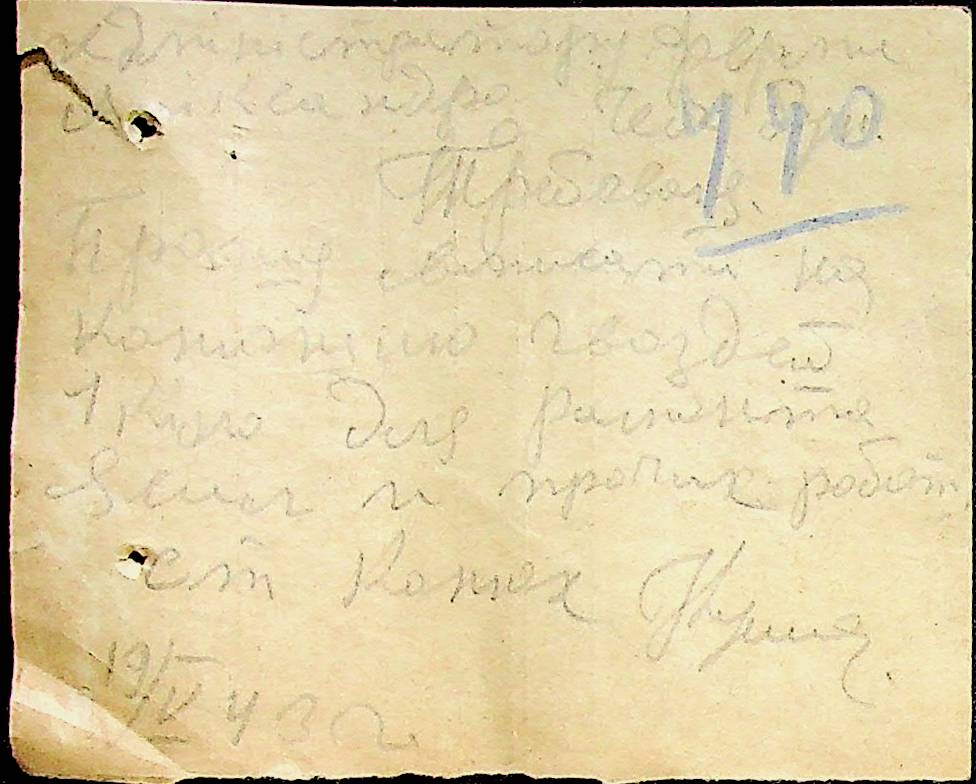 Администратору фермы
Александро
440
Требования
Прошу выписать на
конюшню гвоздей
1 кило для ремонта
и прочих работ
ст Конюх
19/IV 43 г.